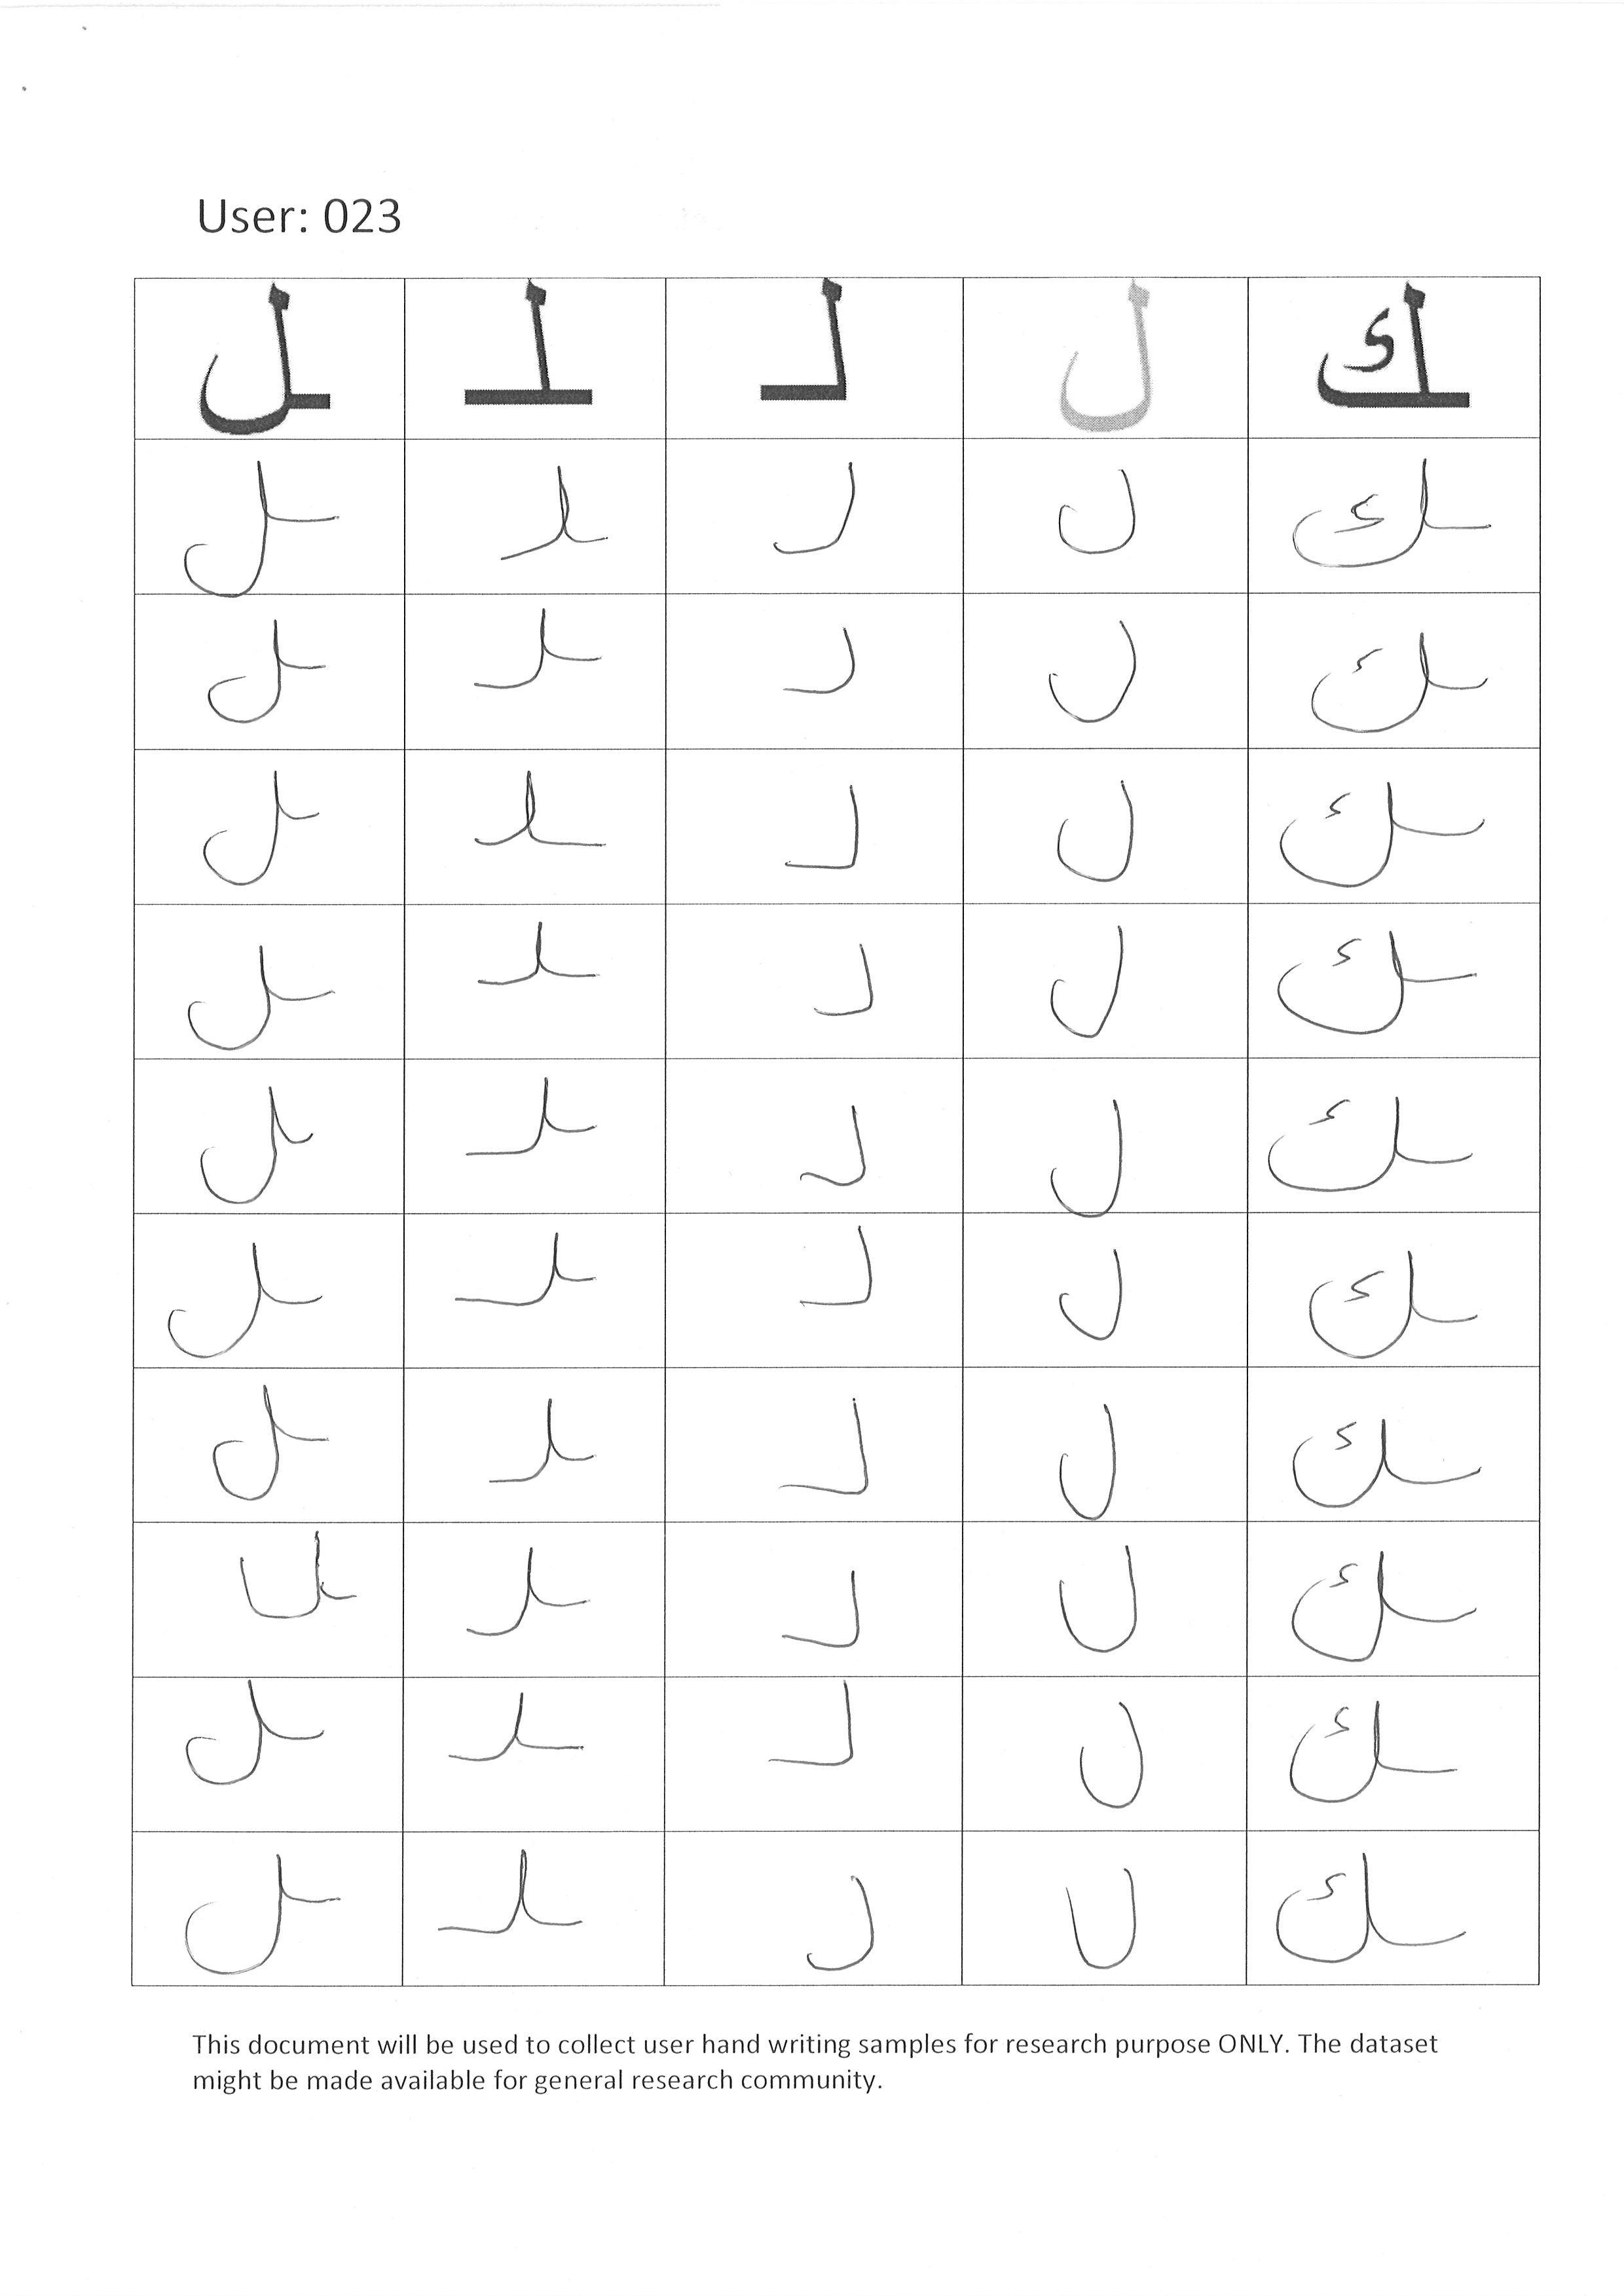 User: 023
ـل ـلـ لـ ل ـك
ـل ـلـ لـ ل ـك
ـل ـلـ لـ ل ـك
ـل ـلـ لـ ل ـك
ـل ـلـ لـ ل ـك
ـل ـلـ لـ ل ـك
ـل ـلـ لـ ل ـك
ـل ـلـ لـ ل ـك
ـل ـلـ لـ ل ـك
ـل ـلـ لـ ل ـك
ـل ـلـ لـ ل ـك
This document will be used to collect user hand writing samples for research purpose ONLY. The dataset
might be made available for general research community.